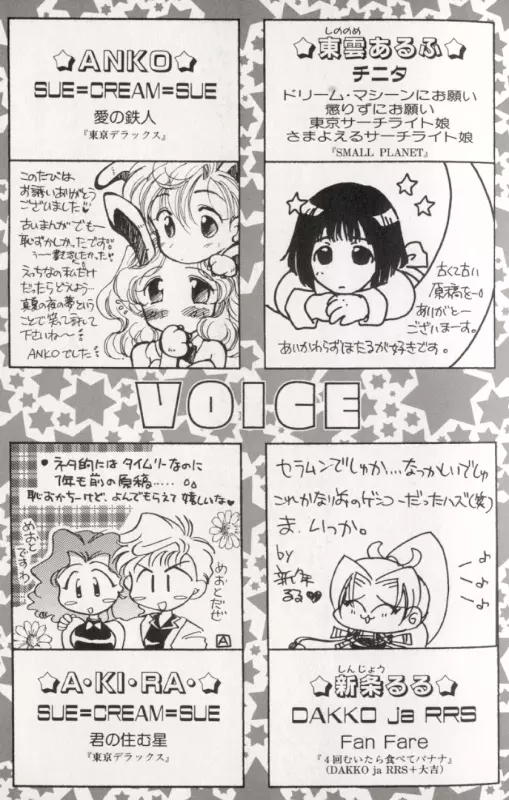 ☆ANKO☆
SUE=CREAM=SUE
愛の鉄人
『東京デラックス』
このたびは
お誘いありがとう
ございました♥
古いまんがでも〜
恥ずかしかったです。
えっちなの私だけ
だったらどうしよう…
真夏の夜の夢という
ことで笑って許して
下さいね〜
ANKOでした
しののめ
☆東雲あるふ☆
チニタ
ドリーム・マシーンにお願い
懲りずにお願い
東京サーチライト娘
さまよえるサーチライト娘
『SMALL PLANET』
古くて古い
原稿を〜
ありがと〜
ございまーす。
あいかわらずほたるが好きです。
VOICE
・ネタ的にはタイムリーなのに
1年も前の原稿‥‥
恥おかちーけど、よんでもらえて嬉しいな♥
めおと
ですわ
めおとだぜ
A
☆A・KI・RA・☆
SUE=CREAM=SUE
君の住む星
『東京デラックス』
セラムンでしゅか…なつかしいでしゅ
これかなり前のゲンコーだったハズ(笑)
ま、いっか。
by
新条
るる♥
しんじょう
☆新条るる☆
DAKKO ja RRS
Fan Fare
『4回むいたら食べてバナナ』
(DAKKO ja RRS+大吉)